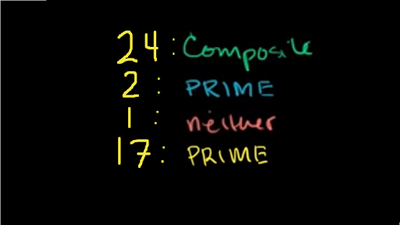 24: Composite
2: PRIME
1: neither
17: PRIME